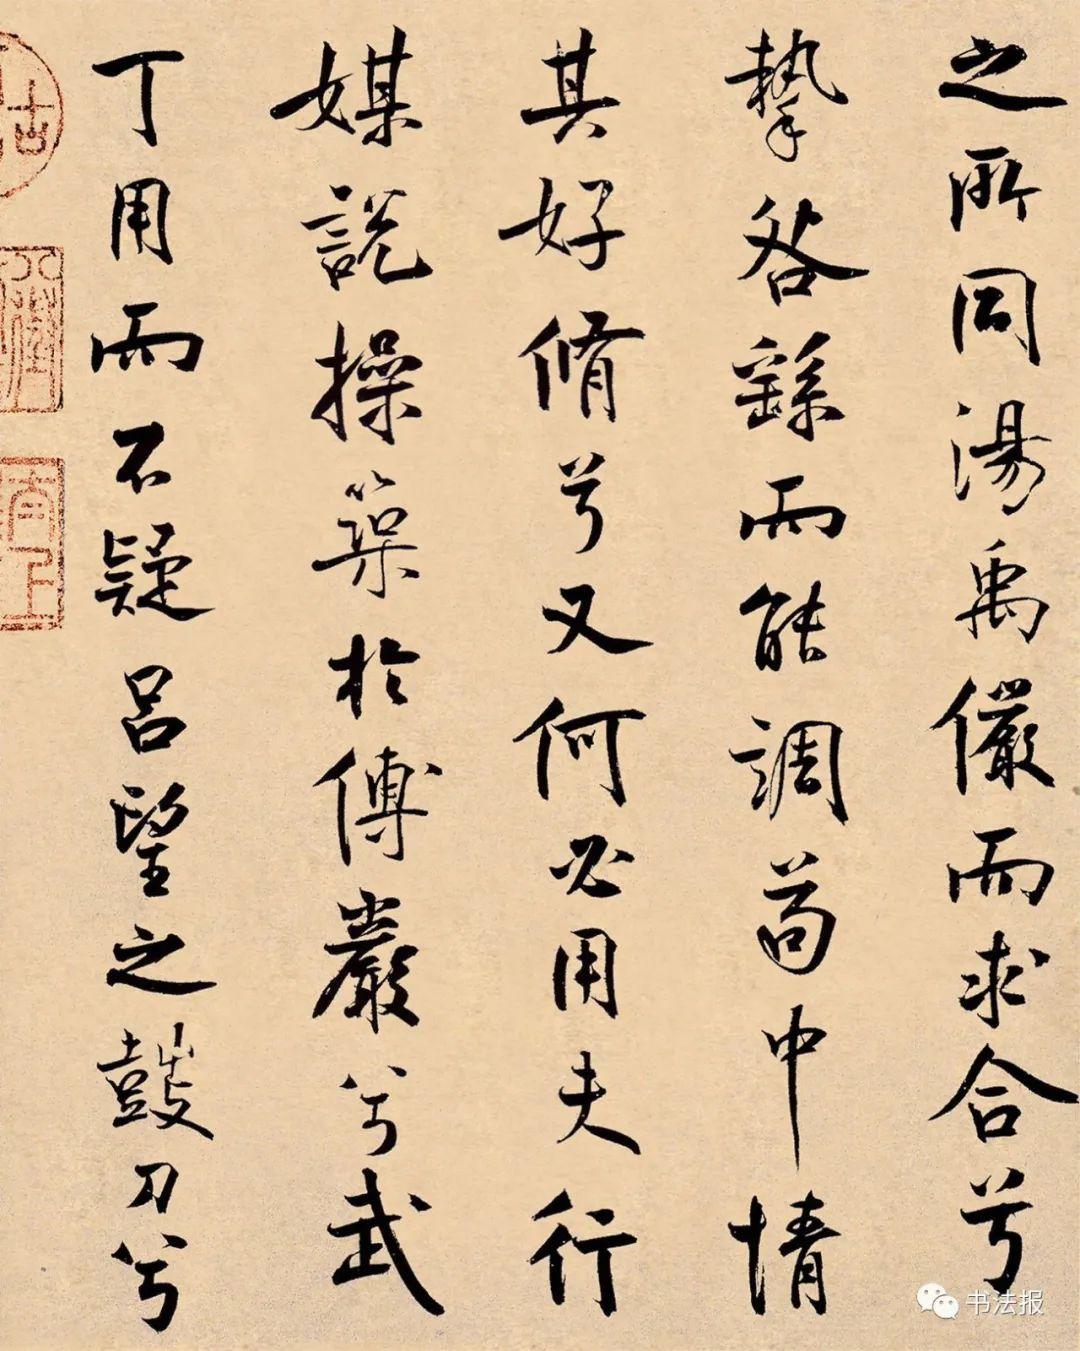 之所同湯禹儼而求合兮
摯咎繇而能調茍中情
其好脩兮又何必用夫行
媒說操築於傅巖兮武
丁用而不疑呂望之鼓刀兮
书法报